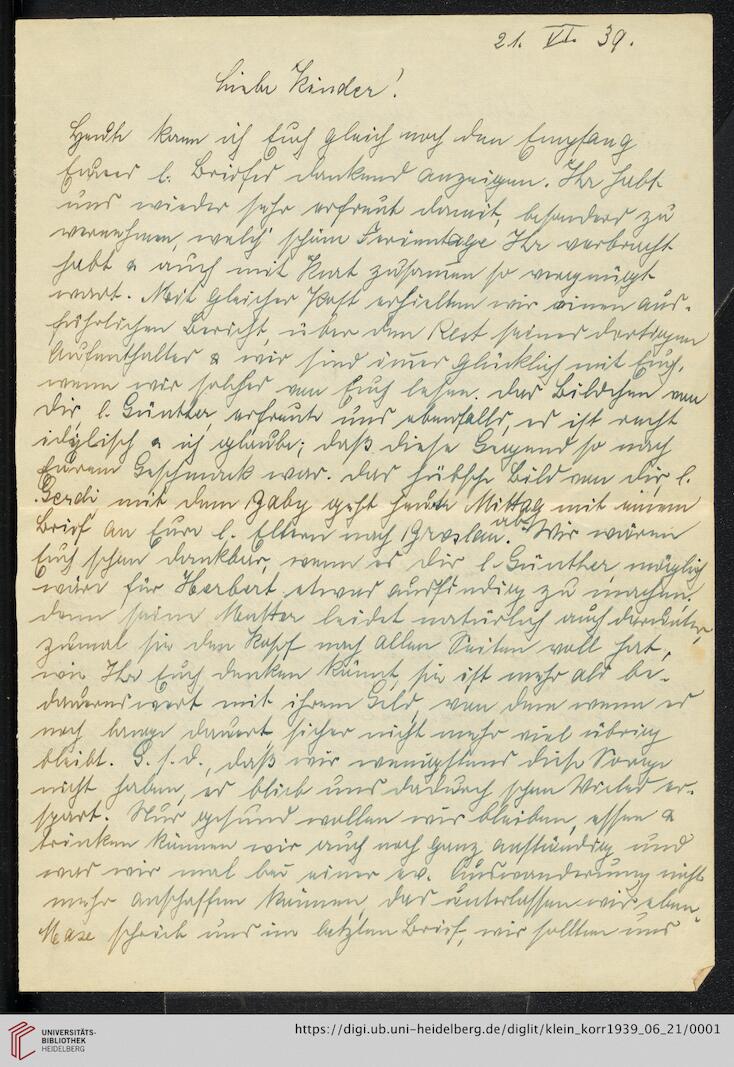 21. VI. 39.
Liebe Kinder!
Heute kann ich Euch gleich noch den Empfang
Eures l. Briefes dankend anzeigen. Ihr habt
uns wieder sehr erfreut damit, besonders zu
vernehmen, welch' schöne Ferientage Ihr verbracht
habt & auch mit Kurt zusammen so vergnügt
wart. Mit gleicher Post erhielten wir einen aus-
führlichen Bericht, über den Rest seines dortigen
Aufenthaltes & wir sind immer glücklich mit Euch,
wenn wir solches von Euch lesen. Das Bildchen von
Dir, l. Günther, erfreute uns ebenfalls, es ist recht
idylisch & ich glaube, daß diese Gegend so nach
Eurem Geschmack war. Das hübsche Bild von Dir, l.
Gerdi mit dem Gaby geht heute Mittag mit einem
Brief an Eure l. Eltern nach Breslau ab. Wir wären
Euch schon dankbar, wenn es Dir l. Günther möglich
wäre für Herbert etwas ausfindig zu machen.
denn seine Mutter leidet natürlich auch darunter,
zumal sie den Kopf nach allen Seiten voll hat,
wie Ihr Euch denken könnt, sie ist mehr als be-
dauernswert mit ihrem Geld, von dem wenn es
noch lange dauert, sicher nicht mehr viel übrig
bleibt. G. s. d., daß wir wenigstens diese Sorge
nicht haben, es blieb uns dadurch schon Vieles er-
spart. Nur gesund wollen wir bleiben, essen &
trinken können wir auch noch ganz anständig und
was wir mal bei einer ev. Auswanderung nicht
mehr anschaffen können, das unterlassen wir eben.
Maxe schrieb uns im letzten Brief, wir sollten uns
UNIVERSITÄTS-
BIBLIOTHEK
HEIDELBERG
https://digi.ub.uni-heidelberg.de/diglit/klein_korr1939_06_21/0001